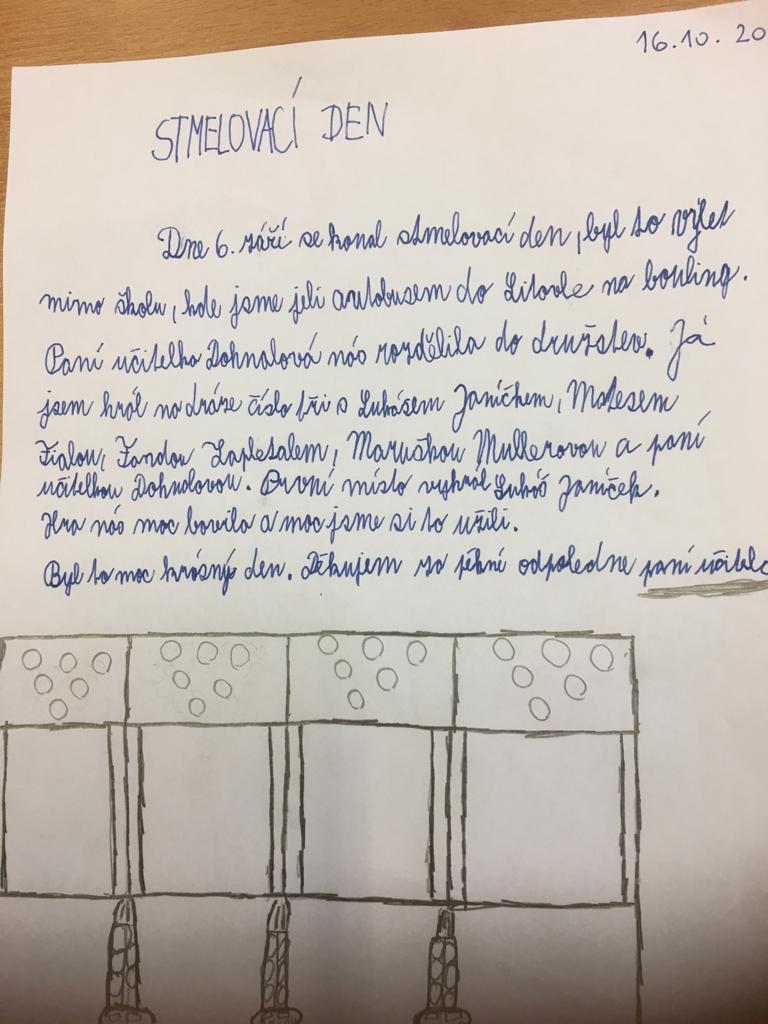 16.10. 20
STMELOVACÍ DEN
Dne 6. září se konal stmelovací den, byl to výlet
mimo školu, kde jsme jeli autobusem do Litovle na bouling.
Paní učitelka Dohnalová nás rozdělila do družstev. Já
jsem hrál na dráze číslo tři s Lukášem Janíčkem, Matesem
Fialou, Fandou Zapletalem, Maruškou Mullerovou a paní
učitelkou Dohnalovou. První místo vyhrál Lukáš Janíček.
Hra nás moc bavila a moc jsme si to užili.
Byl to moc krásný den. Děkujem za pěkné odpoledne paní učitelc